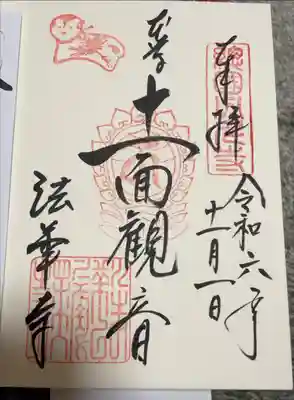 奉拝
令和六年
十一月一日
本尊
十一面観音
法華寺